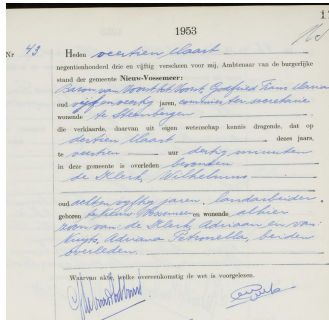 1953
Nr 43
Heden veertien Maart
negentienhonderd drie en vijftig verscheen voor mij, Ambtenaar van de burgerlijke
stand der gemeente Nieuw-Vossemeer:
Baron van Voorst tot Voorst, Godfried Frans Maria
oud vijf en veertig jaren, secretaris
wonende te Steenbergen
die verklaarde, daarvan uit eigen wetenschap kennis dragende, dat op
dertien Maart dezes jaars,
te veertien uur dertig minuten
in deze gemeente is overleden
de Klerk, Wilhelmus
oud vijftig jaren, landarbeider,
geboren te Nieuw-Vossemeer en wonende alhier
zoon van de Klerk, Adriaan en van
Adriana Petronella, beiden
overleden.
Waarvan akte, welke overeenkomstig de wet is voorgelezen.